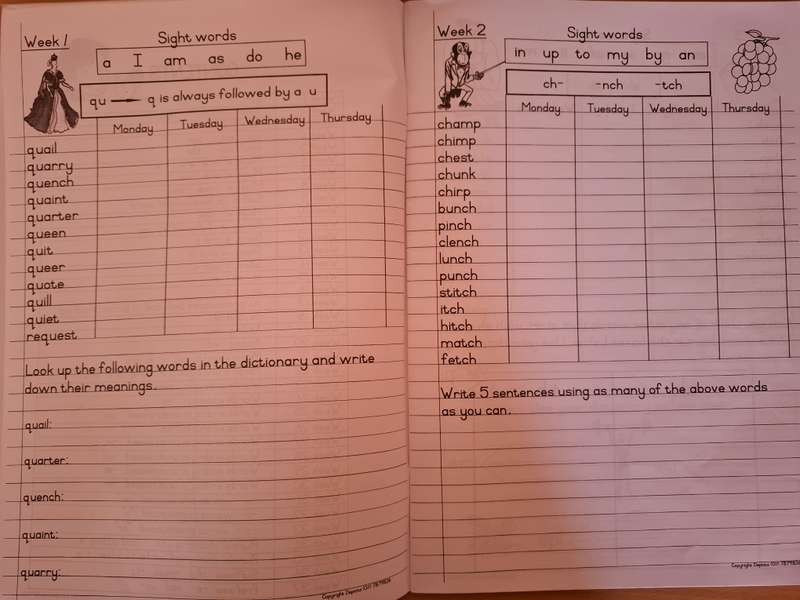 Week 1
Sight words
a I am as do he
qu → q is always followed by a u
Monday Tuesday Wednesday Thursday
quail
quarry
quench
quaint
quarter
queen
quit
queer
quote
quill
quiet
request
Look up the following words in the dictionary and write
down their meanings.
quail:
quarter:
quench:
quaint:
quarry:
Week 2
Sight words
in up to my by an
ch- -nch -tch
Monday Tuesday Wednesday Thursday
champ
chimp
chest
chunk
chirp
bunch
pinch
clench
lunch
punch
stitch
itch
hitch
match
fetch
Write 5 sentences using as many of the above words
as you can.
Copyright